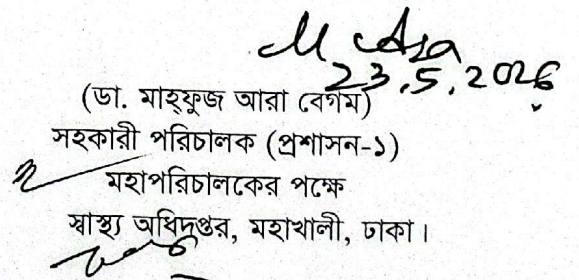 23.5.2026
(ডা. মাহ্ফুজ আরা বেগম)
সহকারী পরিচালক (প্রশাসন-১)
মহাপরিচালকের পক্ষে
স্বাস্থ্য অধিদপ্তর, মহাখালী, ঢাকা।